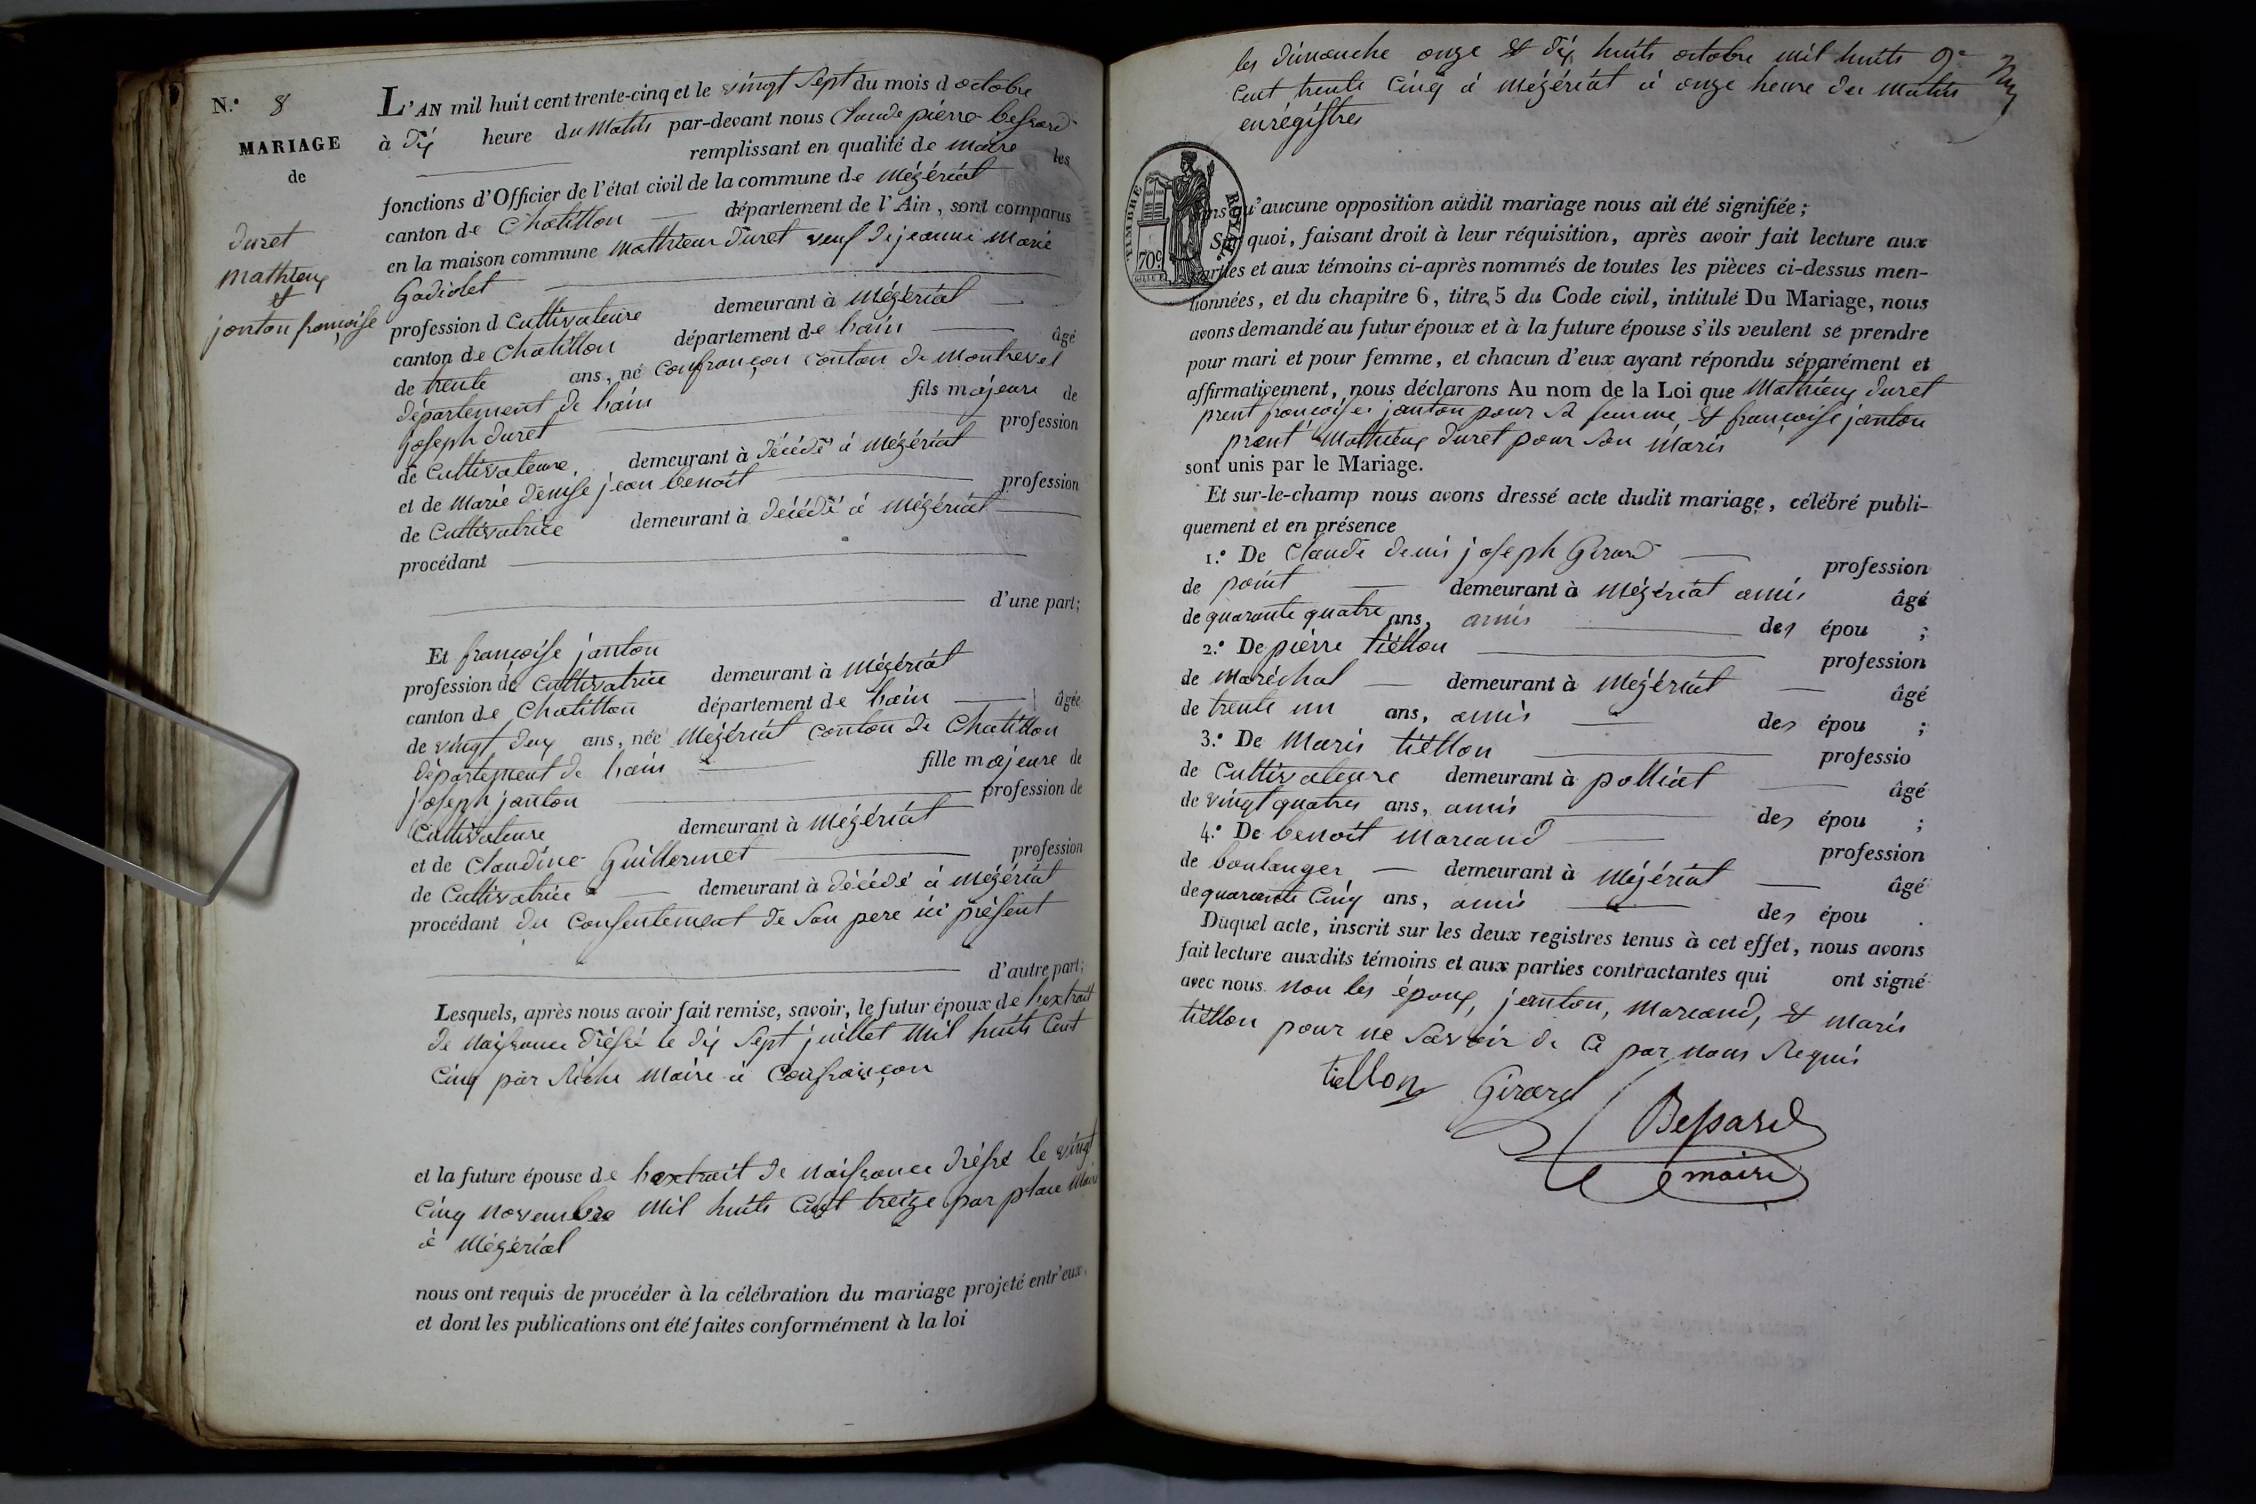 N.° 8
MARIAGE
de
duret
mathieu
et
janton françoise
L'AN mil huit cent trente-cinq et le vingt sept du mois d octobre
à dix heure du matin par-devant nous Claude pierre bessard
remplissant en qualité de maire les
fonctions d'Officier de l'état civil de la commune de mézériat
canton de Chatillon département de l'Ain, sont comparus
en la maison commune mathieu duret veuf de jeanne marie
Gadiolet
profession d Cultivateure demeurant à Mézériat
canton de Chatillon département de hain âgé
de trente ans, né Confrançon canton de Montrevel
département de hain fils majeure de
joseph duret profession
de Cultivateure, demeurant à décédé à Mézériat
et de Marie denise jean benoit profession
de Cultivatrice demeurant à décédé à Mézériat
procédant
d'une part;
Et françoise janton
profession de Cultivatrice demeurant à Mézériat
canton de Chatillon département de hain âgée
de vingt deux ans, née Mézériat canton de Chatillon
département de hain fille majeure de
joseph janton profession de
Cultivateure demeurant à Mézériat
et de Claudine Guillermet profession
de Cultivatrice demeurant à décédé à mézériat
procédant du Consentement de Son pere ici présent
d'autre part;
Lesquels, après nous avoir fait remise, savoir, le futur époux de l'extrait
de naissance dréssé le dix Sept juillet mil huits Cent
Cinq par Maire à Confrançon
et la future épouse de hextrait de naissance dréssé le vingt
Cinq novembre mil huits Cent treize par place Maire
à Mézériat
nous ont requis de procéder à la célébration du mariage projeté entr'eux,
et dont les publications ont été faites conformément à la loi
les dimanche onze et dix huits octobre mil huits
Cent trente Cinq à mézériat à onze heure du matin
enrégistres
TIMBRE ROYAL
70c
sans qu'aucune opposition audit mariage nous ait été signifiée;
Sur quoi, faisant droit à leur réquisition, après avoir fait lecture aux
parties et aux témoins ci-après nommés de toutes les pièces ci-dessus men-
tionnées, et du chapitre 6, titre 5 du Code civil, intitulé Du Mariage, nous
avons demandé au futur époux et à la future épouse s'ils veulent se prendre
pour mari et pour femme, et chacun d'eux ayant répondu séparément et
affirmativement, nous déclarons Au nom de la Loi que Mathieu duret
prent françoise janton pour sa femme et françoise janton
prent Mathieu duret pour Son maris
sont unis par le Mariage.
Et sur-le-champ nous avons dressé acte dudit mariage, célébré publi-
quement et en présence
1.° De Claude denis joseph Girard profession
de point demeurant à Mézériat amis âgé
de quarante quatre ans, amis des épou ;
2.° De pierre tiéllon profession
de Maréchal demeurant à Mézériat âgé
de trente un ans, amis des épou ;
3.° De Maris tiéllon professio
de Cultivateure demeurant à polliat âgé
de vingt quatres ans, amis des épou ;
4.° De benoit Marcand profession
de boulanger demeurant à Méjériat âgé
de quarante Cinq ans, amis des épou .
Duquel acte, inscrit sur les deux registres tenus à cet effet, nous avons
fait lecture auxdits témoins et aux parties contractantes qui ont signé
avec nous non les époux, janton, Marcand, et Maris
tiéllon pour ne Savoir de Ce par nous Requis
tiellon Girard
Bessard
maire